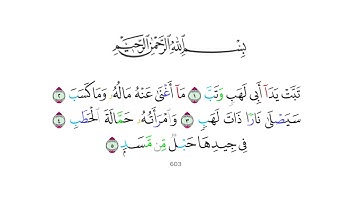 بِسْمِ اللَّهِ الرَّحْمَٰنِ الرَّحِيمِ
تَبَّتْ يَدَآ أَبِى لَهَبٍ وَتَبَّ ١ مَآ أَغْنَىٰ عَنْهُ مَالُهُۥ وَمَا كَسَبَ ٢
سَيَصْلَىٰ نَارًا ذَاتَ لَهَبٍ ٣ وَٱمْرَأَتُهُۥ حَمَّالَةَ ٱلْحَطَبِ ٤
فِى جِيدِهَا حَبْلٌ مِّن مَّسَدٍۭ ٥
603